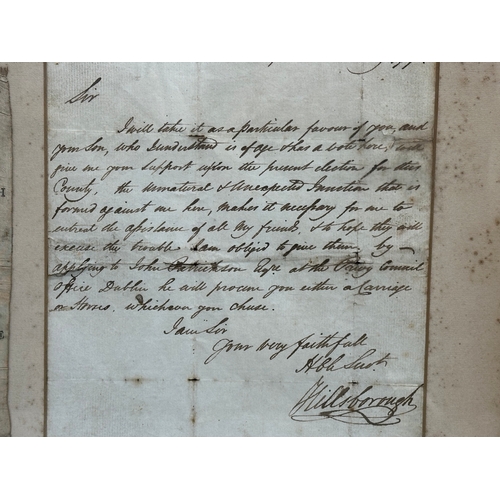 Sir
I will take it as a particular favour if you, and
your Son, who I understand is of age & has a vote here, will
give me your support upon the present election for this
County, the unnatural & Unexpected Junction that is
formed against me here, makes it necessary for me to
entreat the assistance of all my friends, & to hope they will
excuse the trouble I am obliged to give them, by
applying to John Patrickson Esqr. at the Privy Council
Office Dublin he will procure you either a Carriage
or Horses, whichever you chuse.
I am Sir
Your very faithfull
Hble Servt.
Hillsborough